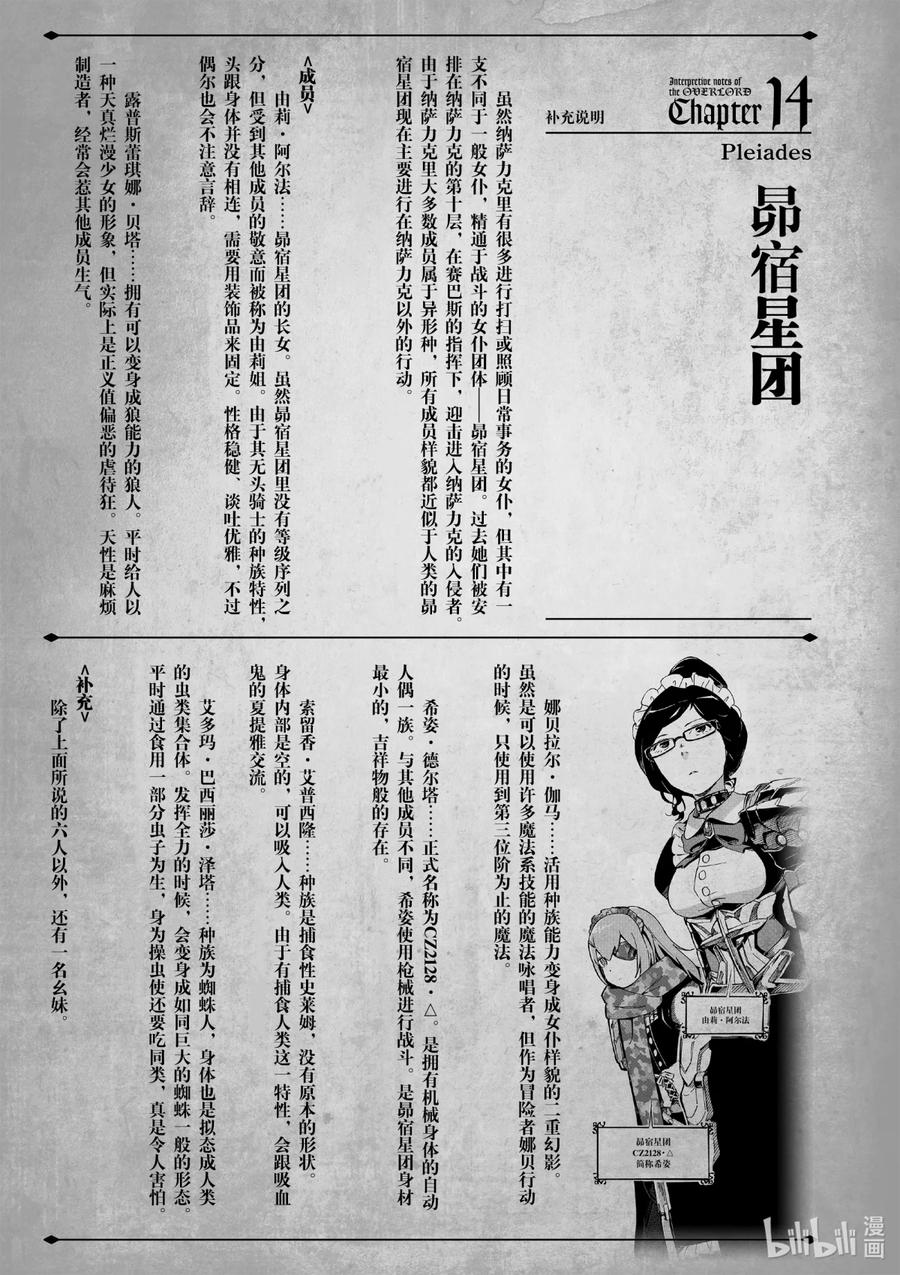 Interpretive notes of
the OVERLORD
Chapter 14
补充说明
Pleiades
昴宿星团
虽然纳萨力克里有很多进行打扫或照顾日常事务的女仆，但其中有一
支不同于一般女仆，精通于战斗的女仆团体——昴宿星团。过去她们被安
排在纳萨力克的第十层，在赛巴斯的指挥下，迎击进入纳萨力克的入侵者。
由于纳萨力克里大多数成员属于异形种，所有成员样貌都近似于人类的昴
宿星团现在主要进行在纳萨力克以外的行动。
<成员>
由莉·阿尔法……昴宿星团的长女。虽然昴宿星团里没有等级序列之
分，但受到其他成员的敬意而被称为由莉姐。由于其无头骑士的种族特性，
头跟身体并没有相连，需要用装饰品来固定。性格稳健、谈吐优雅，不过
偶尔也会不注意言辞。
露普斯蕾琪娜·贝塔……拥有可以变身成狼能力的狼人。平时给人以
一种天真烂漫少女的形象，但实际上是正义值偏恶的虐待狂。天性是麻烦
制造者，经常会惹其他成员生气。
娜贝拉尔·伽马……活用种族能力变身成女仆样貌的二重幻影。
虽然是可以使用许多魔法系技能的魔法咏唱者，但作为冒险者娜贝行动
的时候，只使用到第三位阶为止的魔法。
希姿·德尔塔……正式名称为CZ2128·△。是拥有机械身体的自动
人偶一族。与其他成员不同，希姿使用枪械进行战斗。是昴宿星团身材
最小的，吉祥物般的存在。
索留香·艾普西隆……种族是捕食性史莱姆，没有原本的形状。
身体内部是空的，可以吸入人类。由于有捕食人类这一特性，会跟吸血
鬼的夏提雅交流。
艾多玛·巴西丽莎·泽塔……种族为蜘蛛人，身体也是拟态成人类
的虫类集合体。发挥全力的时候，会变身成如同巨大的蜘蛛一般的形态。
平时通过食用一部分虫子为生，身为操虫使还要吃同类，真是令人害怕。
<补充>
除了上面所说的六人以外，还有一名幺妹。
昴宿星团
由莉·阿尔法
昴宿星团
CZ2128·△
简称希姿
bilibili
漫画